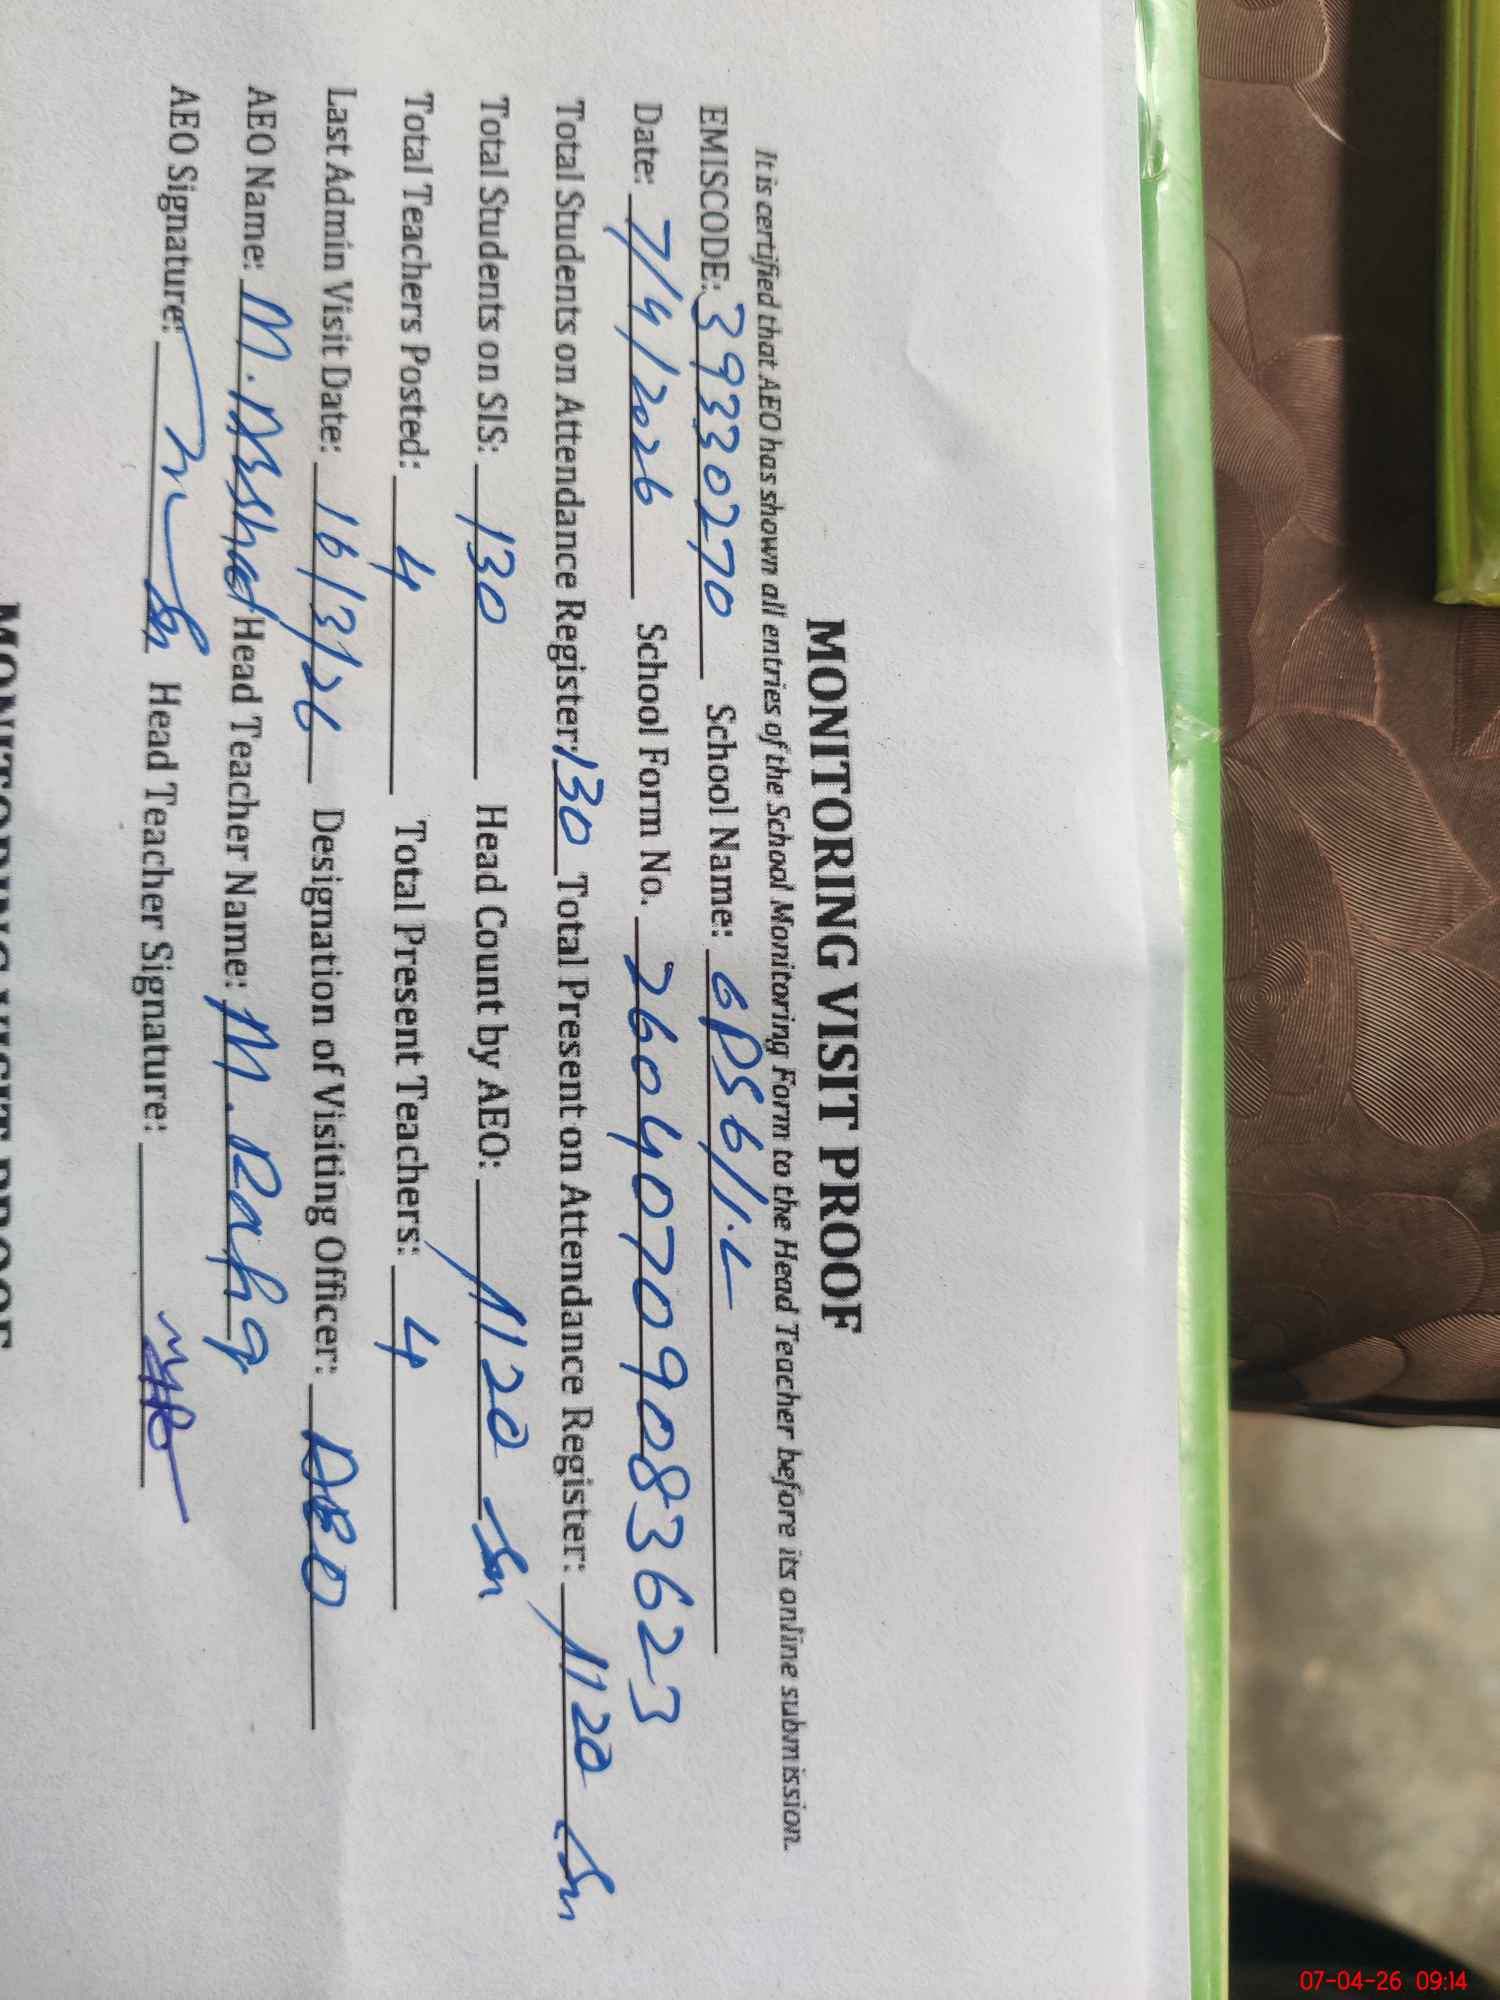 MONITORING VISIT PROOF
It is certified that AEO has shown all entries of the School Monitoring Form to the Head Teacher before its online submission.
EMISCODE: 39330270 School Name: GPS 6/1.L
Date: 7/4/2026 School Form No. 26040709083623
Total Students on Attendance Register: 130 Total Present on Attendance Register: 120
Total Students on SIS: 130 Head Count by AEO: 120
Total Teachers Posted: 4 Total Present Teachers: 4
Last Admin Visit Date: 16/3/26 Designation of Visiting Officer: AEO
AEO Name: M. Arshad Head Teacher Name: M. Rafiq
AEO Signature: Head Teacher Signature:
MONITORING VISIT PROOF
07-04-26 09:14